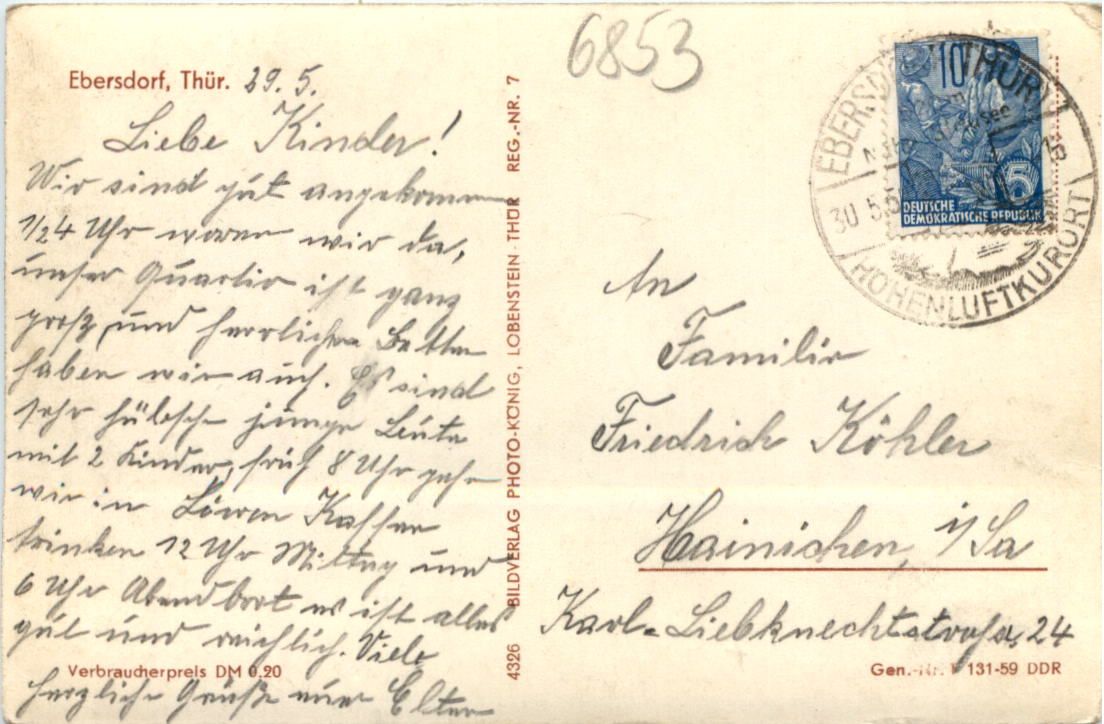 6853
Ebersdorf, Thür. 29.5.
Liebe Kinder!
Wir sind gut angekommen
1/24 Uhr waren wir da,
unser Quartir ist ganz
groß, und herrlichen Betten
haben wir auch. Es sind
sehr hübsche junge Leute
mit 2 Kinder, früh 8 Uhr gehn
wir in Löwen Kaffee
trinken 12 Uhr Mittag und
6 Uhr Abendbrot es ist alles
gut und reichlich. Viele
herzliche Grüße eure Eltern
Verbraucherpreis DM 0.20
4326 BILDVERLAG PHOTO-KÖNIG, LOBENSTEIN THÜR REG.-NR. 7
10
5
DEUTSCHE
DEMOKRATISCHE REPUBLIK
EBERSDORF THÜR
30 5
HÖHENLUFTKURORT
An
Familie
Friedrich Köhler
Hainichen, i/Sa
Karl-Liebknechtstraße, 24
Gen.-Nr. 131-59 DDR